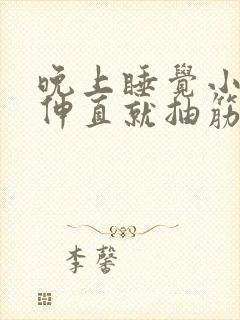 晚上睡覺小
伸直就抽筋
李馨